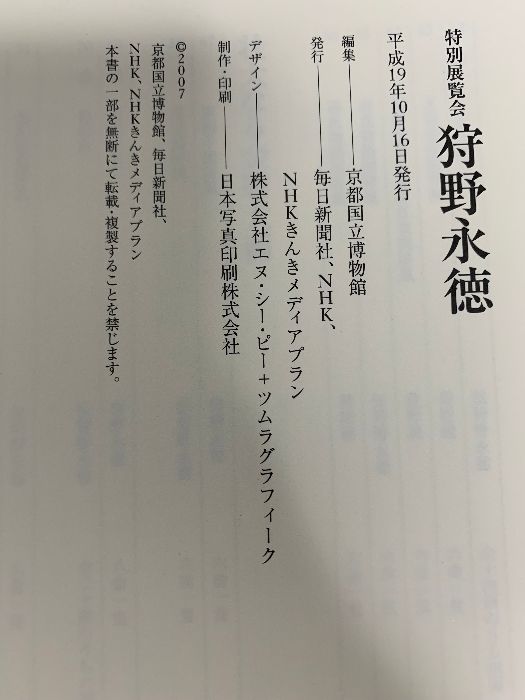 特別展覧会 狩野永徳
平成19年10月16日発行
編集――京都国立博物館
発行――毎日新聞社、NHK、
NHKきんきメディアプラン
デザイン――株式会社エヌ・シー・ピー+ツムラグラフィーク
制作・印刷――日本写真印刷株式会社
©2007
京都国立博物館、毎日新聞社、
NHK、NHKきんきメディアプラン
本書の一部を無断にて転載・複製することを禁じます。